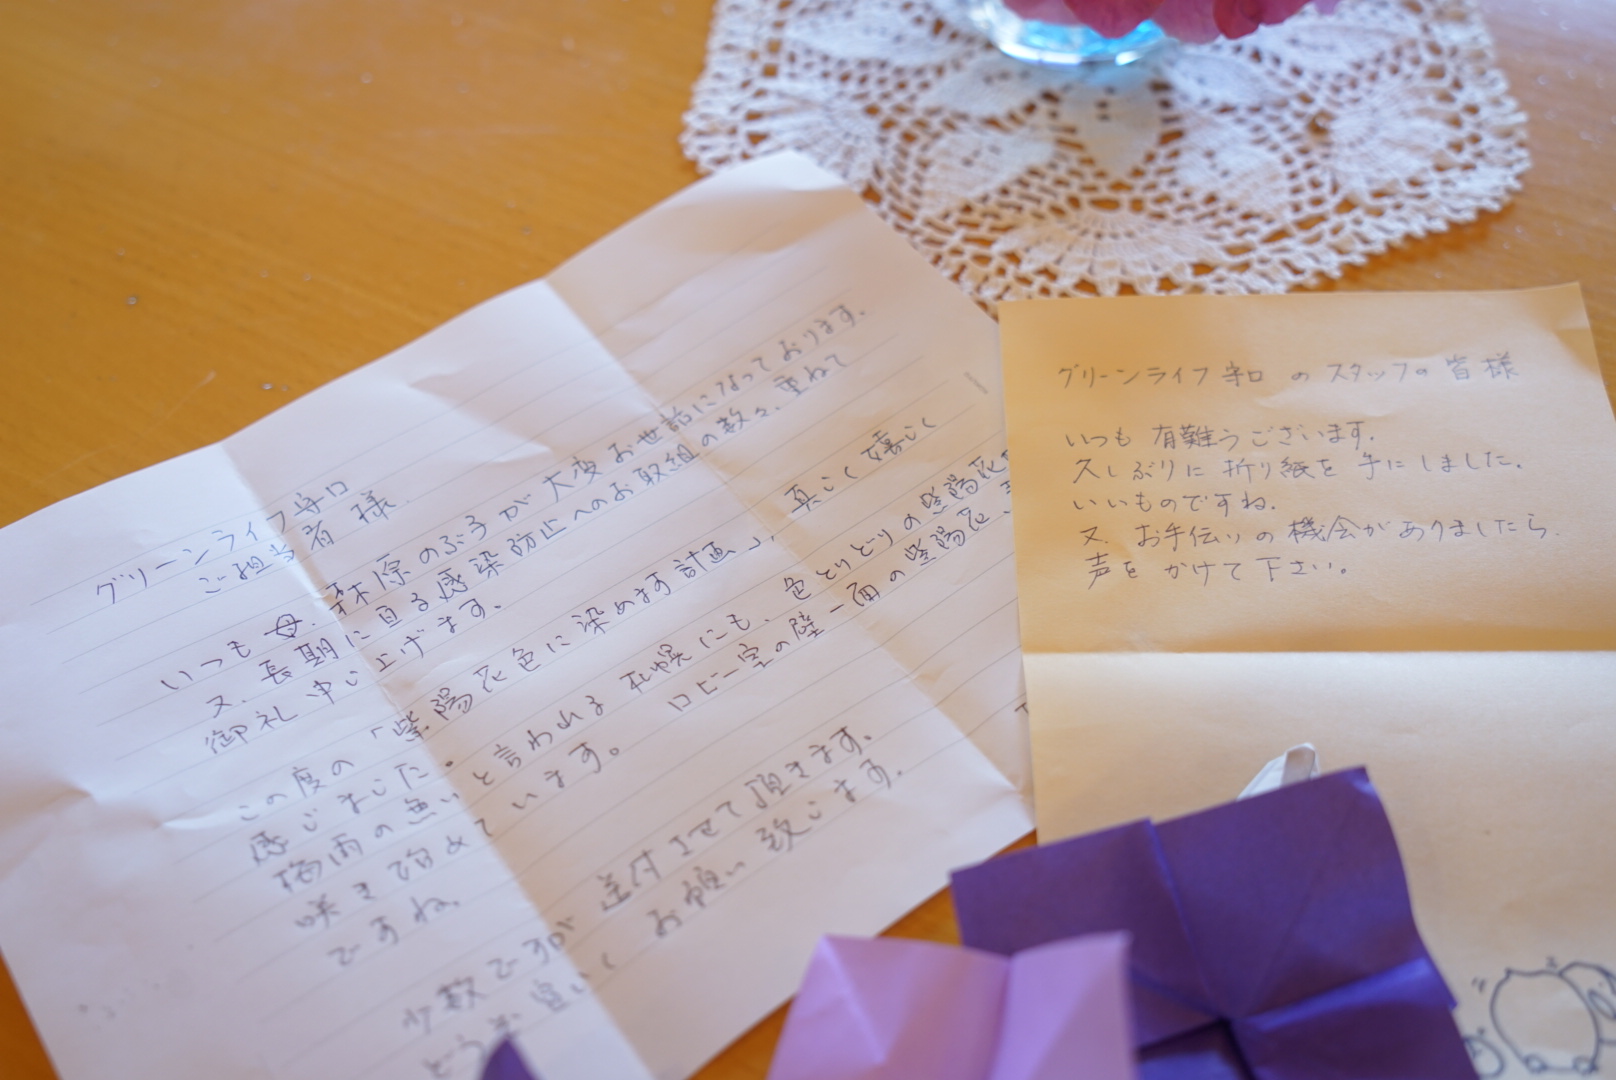 グリーンライフ守口
ご担当者様
いつも母、森原のぶ子が大変お世話になっております。
又、長期に亘る感染防止へのお取組の数々、重ねて
御礼申し上げます。
この度の「紫陽花色に染めます計画」、真しく嬉しく
感じました。
梅雨の無いと言われる札幌にも、色とりどりの紫陽花
咲き始めています。ロビー室の壁一面の紫陽花、
ですね。
少数ですが送付させて頂きます。
どうぞ宜しくお願い致します。
グリーンライフ守口のスタッフの皆様
いつも有難うございます。
久しぶりに折り紙を手にしました。
いいものですね。
又、お手伝いの機会がありましたら、
声をかけて下さい。